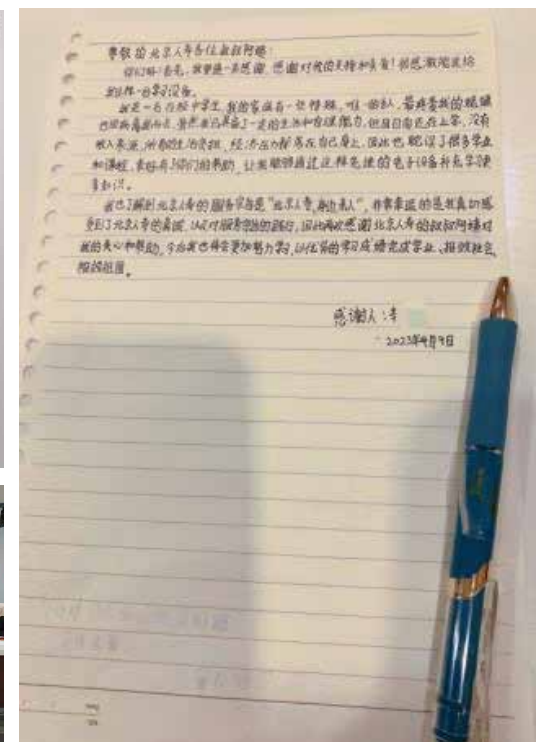 尊敬的北京人寿各位叔叔阿姨：
你们好！首先，我要道一声感谢，感谢对我的支持和关爱！很感激能送给
我这样一台学习设备。
我是一名在校中学生，我的家庭有一些特殊，唯一的亲人，最疼爱我的姥姥
也因病离我而去。虽然我已具备了一定的生活和自理能力，但目前还在上学，没有
收入来源，所有的生活负担、经济压力都落在自己身上，因此也耽误了很多学业
和课程，幸好有了你们的帮助，让我能够通过这样先进的电子设备补充学习更
多知识。
我也了解到北京人寿的服务宗旨是“北京人寿，身边亲人”，非常幸运的是我真切感
受到了北京人寿的真诚，以及对服务宗旨的践行，因此再次感谢北京人寿的叔叔阿姨对
我的关心和帮助，今后我也将会更加努力学习，以优异的学习成绩完成学业、报效社会、
报效祖国。
感谢人：李
2023年9月9日